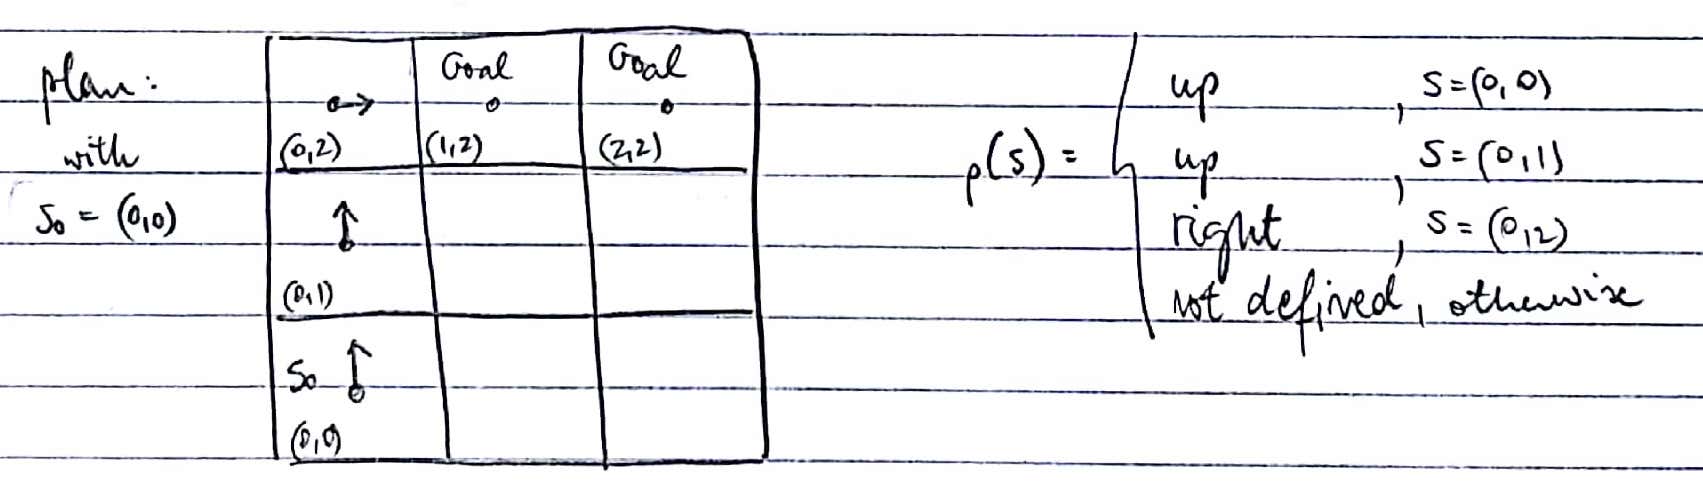 plan:
with
S₀ = (0,0)
Goal Goal
(0,2) (1,2) (2,2)
(0,1)
S₀
(0,0)
p(s) =
up , S=(0,0)
up , S=(0,1)
right , S=(0,2)
not defined, otherwise